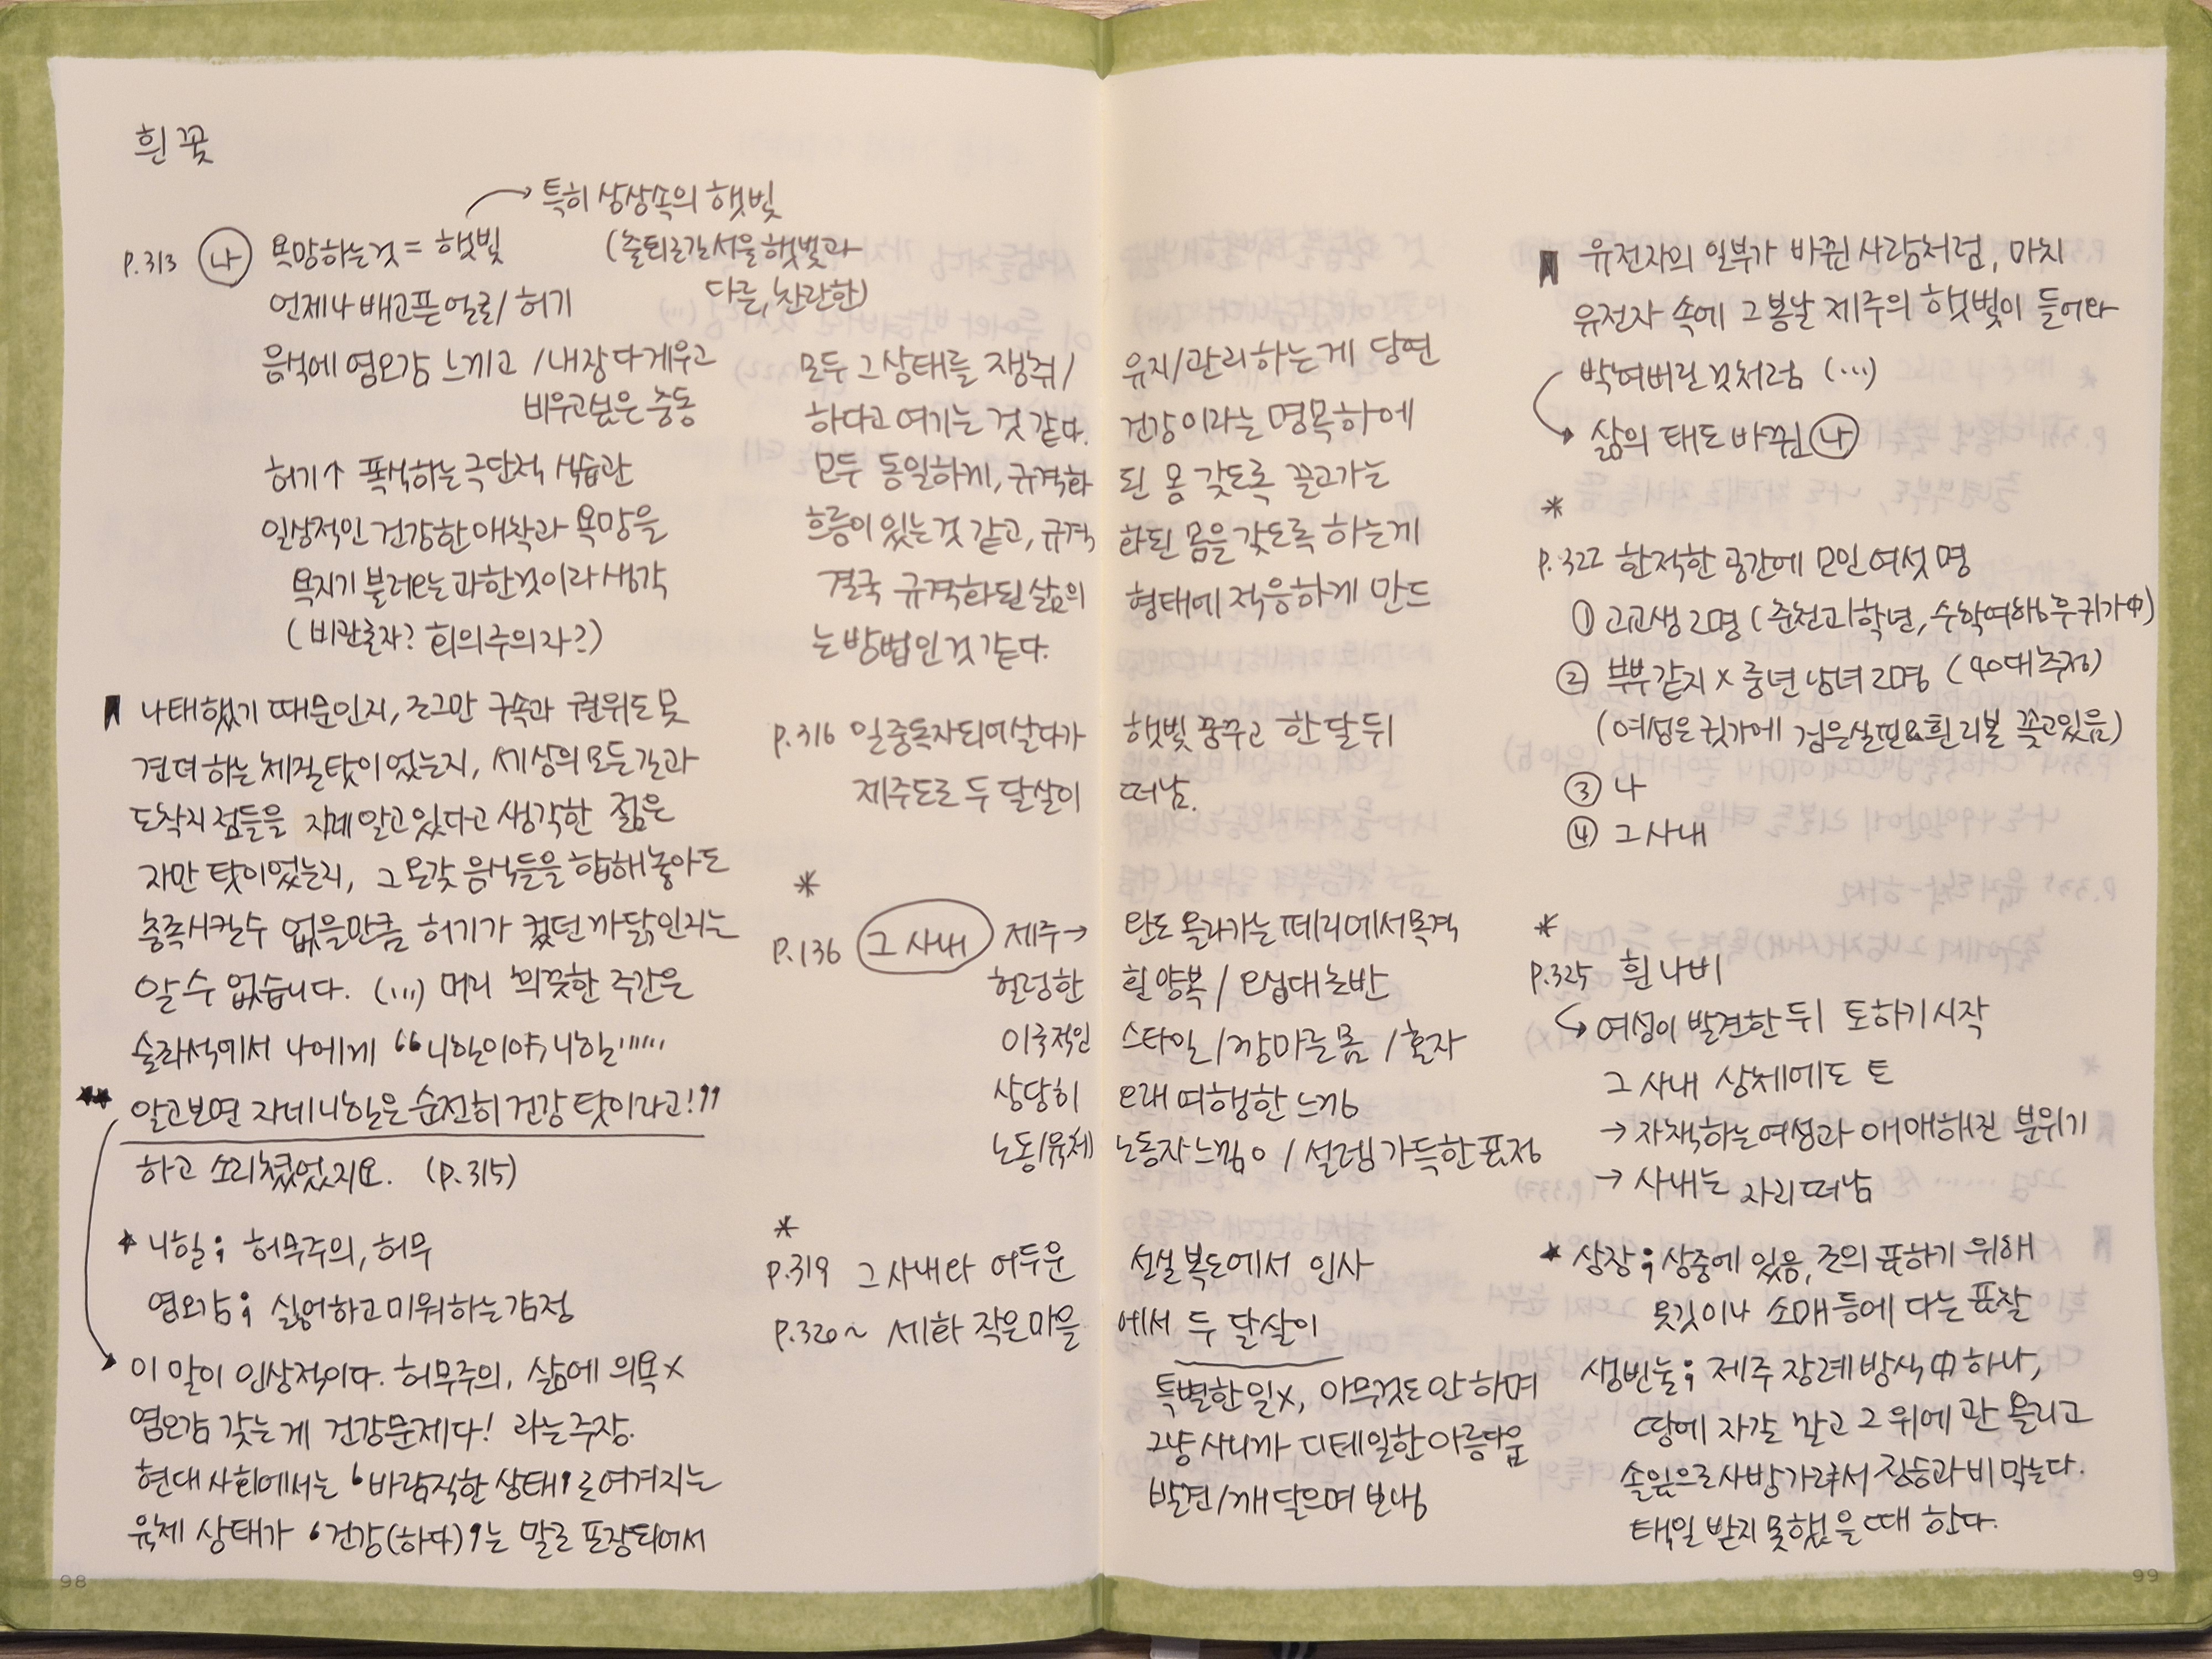 흰 꽃
→ 특히 상상속의 햇빛
p.313 나 욕망하는것 = 햇빛 (출퇴근길 서울 햇빛과
다른, 찬란한)
언제나 배고픈 얼굴/허기
음식에 혐오감 느끼고 /내장 다 게우고
비우고싶은 충동
허기↑ 폭식하는 극단적 식습관
일상적인 건강한 애착과 욕망을
욕지기 불러오는 과한것이라 생각
(비관론자? 회의주의자?)
나태했기 때문인지, 조그만 구속과 권위도 못
견뎌 하는 체질 탓이었는지, 세상의 모든 길과
도착지점들을 자네 알고있다고 생각한 젊은
자만 탓이었는지, 그 온갖 음식들을 합해놓아도
충족시킬수 없을만큼 허기가 컸던 까닭인지는
알 수 없습니다. (...) 머리 희끗한 주간은
술좌석에서 나에게 “니힐이야, 니힐......
★★ 알고보면 자네 니힐은 순전히 건강 탓이라고!”
하고 소리쳤었지요. (p.315)
★ 니힐; 허무주의, 허무
혐오감; 싫어하고 미워하는 감정
→ 이 말이 인상적이다. 허무주의, 삶에 의욕x
혐오감 갖는 게 건강문제다! 라는 주장.
현대 사회에서는 ‘바람직한 상태’로 여겨지는
육체 상태가 ‘건강(하다)’는 말로 포장되어서
98
모두 그 상태를 쟁취/유지/관리하는 게 당연
하다고 여기는 것 같다. 건강이라는 명목하에
모두 동일하게, 규격화 된 몸 갖도록 끌고가는
흐름이 있는것 같고, 규격화된 몸을 갖도록 하는게
결국 규격화된 삶의 형태에 적응하게 만드
는 방법인것 같다.
p.316 일중독자되어 살다가 햇빛 꿈꾸고 한 달 뒤
제주도로 두 달살이 떠남.
*
p.136 그 사내 제주→ 완도 올라가는 페리에서 목격
헐렁한 흰 양복/오십대초반
이국적인 스타일/깡마른 몸/혼자
상당히 오래 여행한 느낌
노동/육체 노동자느낌o /설렘가득한 표정
*
p.319 그 사내와 어두운 선실 복도에서 인사
p.320~ 세화 작은마을에서 두 달살이
특별한 일x, 아무것도 안 하며
그냥 사니까 디테일한 아름다움
발견/깨달으며 보냄
유전자의 일부가 바뀐 사람처럼, 마치
유전자 속에 그 봄날 제주의 햇빛이 들어와
박여버린 것처럼 (...)
→ 삶의 태도 바뀐 나
*
p.322 한적한 공간에 모인 여섯 명
① 고교생 2명 (춘천고 학년, 수학여행후 귀가中)
② 부부같지x 중년 남녀 2명 (40대추정)
(여성은 귓가에 검은실핀&흰 리본 꽂고있음)
③ 나
④ 그 사내
*
p.325 흰 나비
→ 여성이 발견한 뒤 토하기 시작
그 사내 상체에도 토
→ 자책하는 여성과 애매해진 분위기
→ 사내는 자리 떠남
★ 상장; 상중에 있음, 조의 표하기 위해
옷깃이나 소매 등에 다는 표찰
생빈눌; 제주 장례 방식 中 하나,
땅에 자갈 깔고 그 위에 관 올리고
솔잎으로 사방 가려서 짐승과 비 막는다.
택일 받지 못했을 때 한다.
99